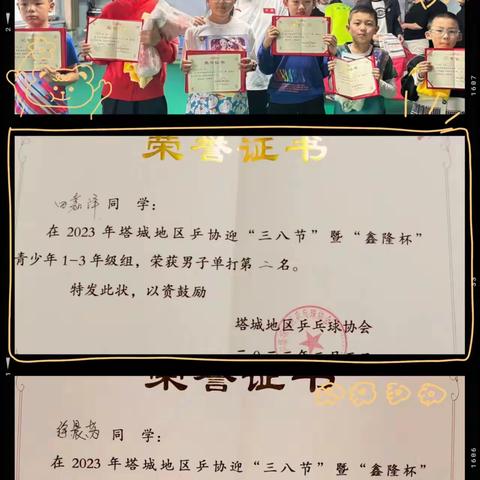 荣誉证书
田鑫泽 同 学：
在 2023 年塔城地区乒协迎“三八节”暨“鑫隆杯”
青少年 1-3 年级组，荣获男子单打第 二 名。
特发此状，以资鼓励
塔城地区乒乓球协会
荣誉证书
徐晨尧 同 学：
在 2023 年塔城地区乒协迎“三八节”暨“鑫隆杯”